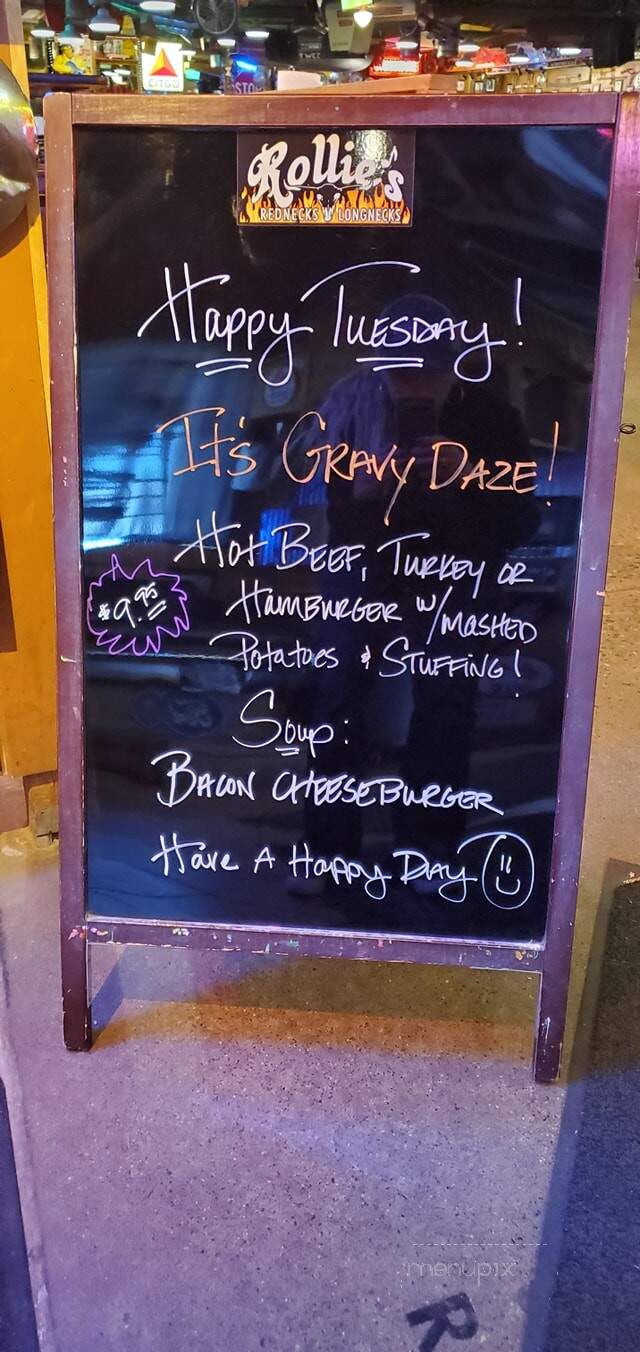 CITGO
STOP
Rollie's
REDNECKS N' LONGNECKS
Happy Tuesday!
It's Gravy Daze!
Hot Beef, Turkey or
$9.95
Hamburger w/mashed
Potatoes & Stuffing!
Soup:
Bacon Cheeseburger
Have A Happy Day
menupix
R